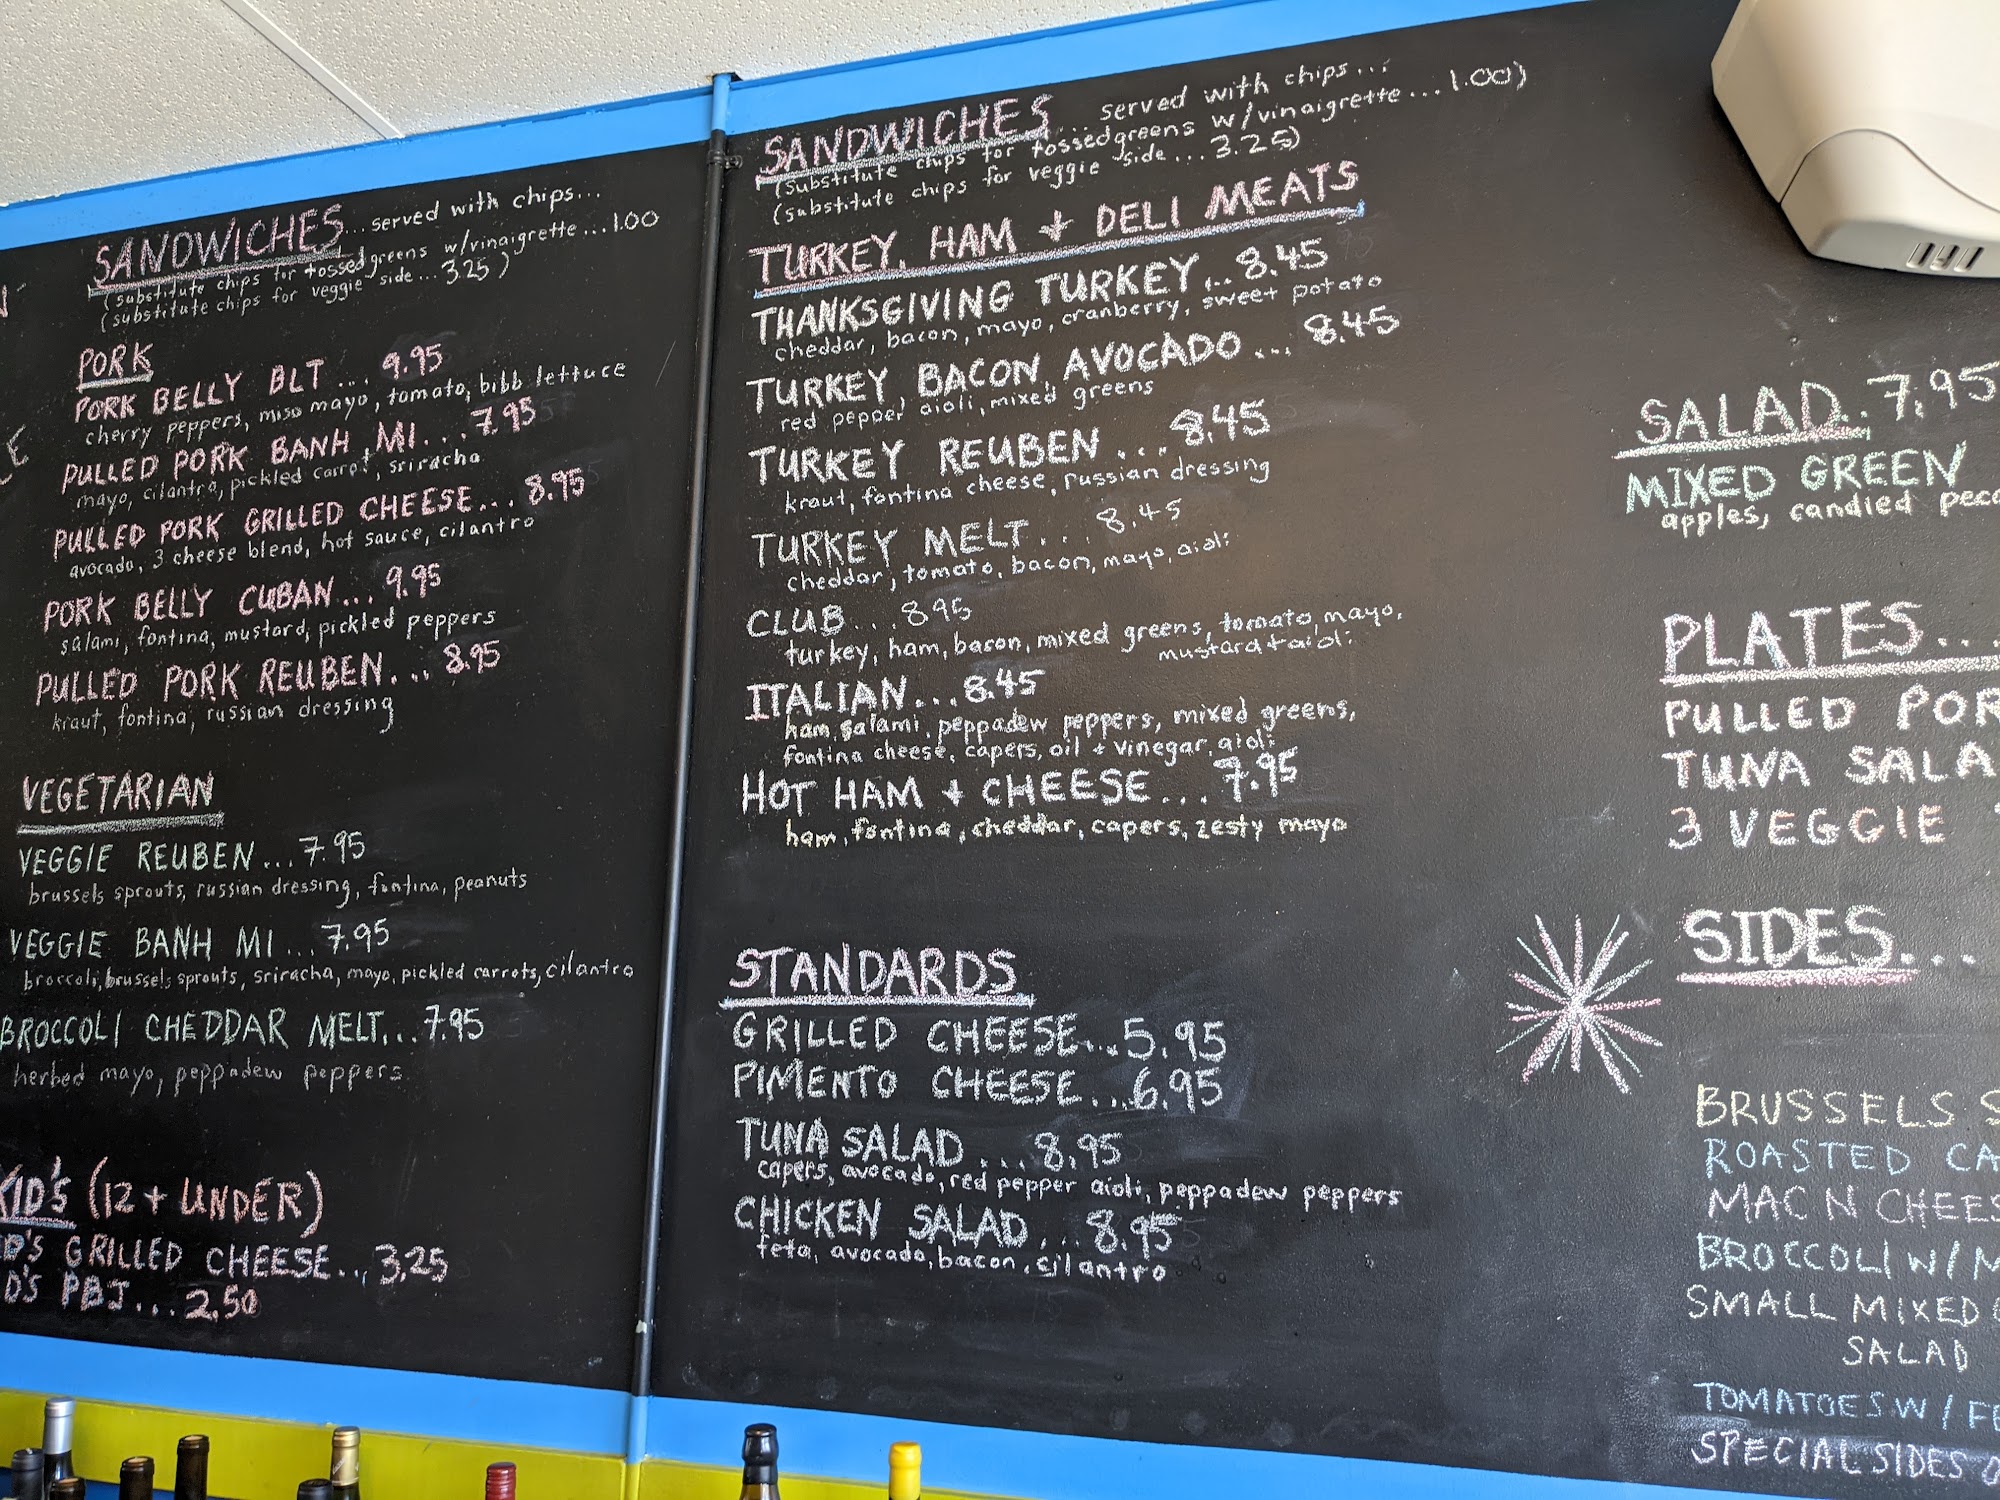 SANDWICHES...served with chips...
(substitute chips for tossed greens w/vinaigrette...1.00
(substitute chips for veggie side...3.25)
PORK
PORK BELLY BLT... 9.95
cherry peppers, miso mayo, tomato, bibb lettuce
PULLED PORK BANH MI...7.95
mayo, cilantro, pickled carrot, sriracha
PULLED PORK GRILLED CHEESE...8.95
avocado, 3 cheese blend, hot sauce, cilantro
PORK BELLY CUBAN...9.95
salami, fontina, mustard, pickled peppers
PULLED PORK REUBEN...8.95
kraut, fontina, russian dressing
VEGETARIAN
VEGGIE REUBEN...7.95
brussels sprouts, russian dressing, fontina, peanuts
VEGGIE BANH MI...7.95
broccoli, brussels sprouts, sriracha, mayo, pickled carrots, cilantro
BROCCOLI CHEDDAR MELT...7.95
herbed mayo, peppadew peppers
KID'S (12 + UNDER)
D'S GRILLED CHEESE...3.25
D'S PBJ...2.50
SANDWICHES...served with chips...
(substitute chips for tossed greens w/vinaigrette...1.00)
(substitute chips for veggie side...3.25)
TURKEY, HAM + DELI MEATS
THANKSGIVING TURKEY...8.45
cheddar, bacon, mayo, cranberry, sweet potato
TURKEY, BACON, AVOCADO...8.45
red pepper aioli, mixed greens
TURKEY REUBEN...8.45
kraut, fontina cheese, russian dressing
TURKEY MELT...8.45
cheddar, tomato, bacon, mayo, aioli
CLUB...8.95
turkey, ham, bacon, mixed greens, tomato, mayo,
mustard + aioli
ITALIAN...8.45
ham, salami, peppadew peppers, mixed greens,
fontina cheese, capers, oil + vinegar, aioli
HOT HAM + CHEESE...7.95
ham, fontina, cheddar, capers, zesty mayo
STANDARDS
GRILLED CHEESE...5.95
PIMENTO CHEESE...6.95
TUNA SALAD...8.95
capers, avocado, red pepper aioli, peppadew peppers
CHICKEN SALAD...8.95
feta, avocado, bacon, cilantro
SALAD..7.95
MIXED GREEN
apples, candied peca
PLATES...
PULLED POR
TUNA SALA
3 VEGGIE
SIDES...
BRUSSELS S
ROASTED CA
MAC N CHEES
BROCCOLI W/M
SMALL MIXED G
SALAD
TOMATOES W/FE
SPECIAL SIDES